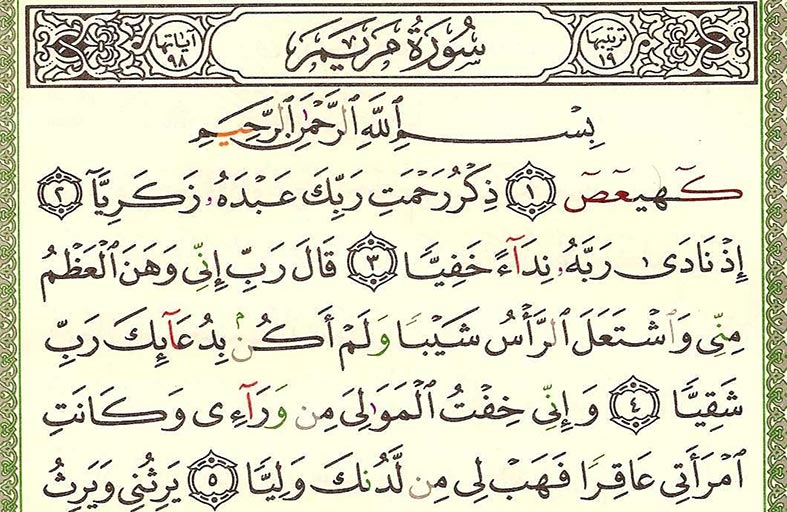 ترتيبها ١٩ سُورَةُ مَرْيَمَ آياتها ٩٨
بِسْمِ ٱللَّهِ ٱلرَّحْمَٰنِ ٱلرَّحِيمِ
كٓهيعٓصٓ ١ ذِكْرُ رَحْمَتِ رَبِّكَ عَبْدَهُۥ زَكَرِيَّآ ٢
إِذْ نَادَىٰ رَبَّهُۥ نِدَآءً خَفِيًّا ٣ قَالَ رَبِّ إِنِّى وَهَنَ ٱلْعَظْمُ
مِنِّى وَٱشْتَعَلَ ٱلرَّأْسُ شَيْبًا وَلَمْ أَكُنۢ بِدُعَآئِكَ رَبِّ
شَقِيًّا ٤ وَإِنِّى خِفْتُ ٱلْمَوَٰلِىَ مِن وَرَآءِى وَكَانَتِ
ٱمْرَأَتِى عَاقِرًا فَهَبْ لِى مِن لَّدُنكَ وَلِيًّا ٥ يَرِثُنِى وَيَرِثُ